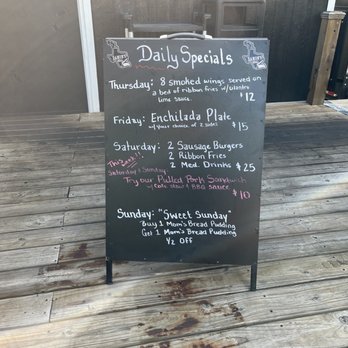 Daily Specials
Thursday: 8 smoked wings served on
a bed of ribbon fries w/cilantro
lime sauce. $12
Friday: Enchilada Plate
w/ your choice of 2 sides! $15
Saturday: 2 Sausage Burgers
2 Ribbon Fries
2 Med. Drinks $25
This week!!
Saturday & Sunday:
Try our Pulled Pork Sandwich
w/ Cole slaw & BBQ sauce
$10
Sunday: "Sweet Sunday"
Buy 1 Mom's Bread Pudding
Get 1 Mom's Bread Pudding
1/2 off